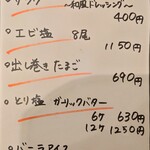 〜和風ドレッシング〜
400円
。エビ塩 8尾
1150円
。出し巻きたまご
690円
。とり塩 ガーリックバター
6ケ 630円
12ケ 1250円
。バニラアイス